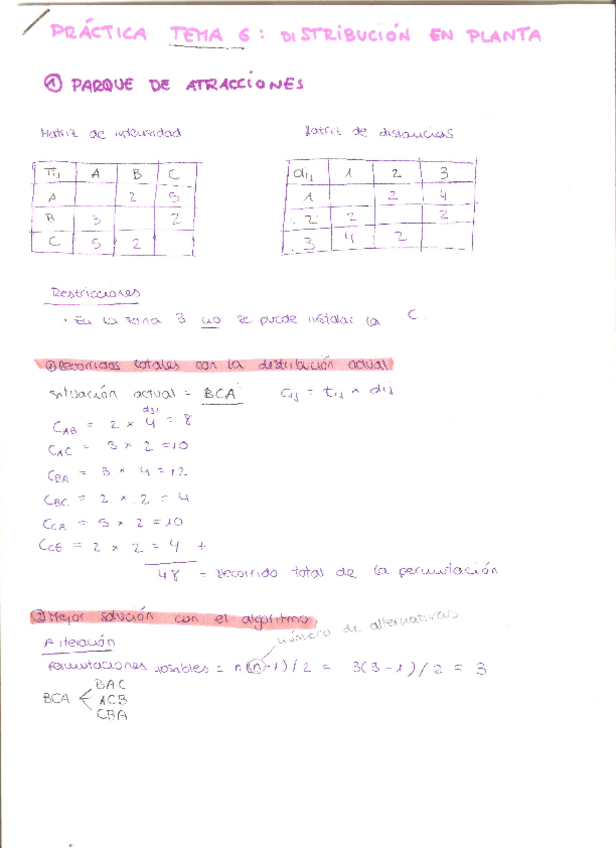 PRÁCTICA TEMA 6: DISTRIBUCIÓN EN PLANTA
① PARQUE DE ATRACCIONES
Matriz de intensidad
Matriz de distancias
Tij A B C
A 2 5
B 3 2
C 5 2
dij 1 2 3
1 2 4
2 2 2
3 4 2
Restricciones
· En la zona 3 no se puede instalar la C.
① Recorridos totales con la distribución actual
Situación actual = BCA Cij = tij × dij
d31
CAB = 2 × 4 = 8
CAC = 5 × 2 = 10
CBA = 3 × 4 = 12
CBC = 2 × 2 = 4
CCA = 5 × 2 = 10
CCB = 2 × 2 = 4 +
48 = recorrido total de la permutación
② Mejor solución con el algoritmo.
número de alternativas
iteración
Permutaciones posibles = n(n-1)/2 = 3(3-1)/2 = 3
BAC
BCA ACB
CBA